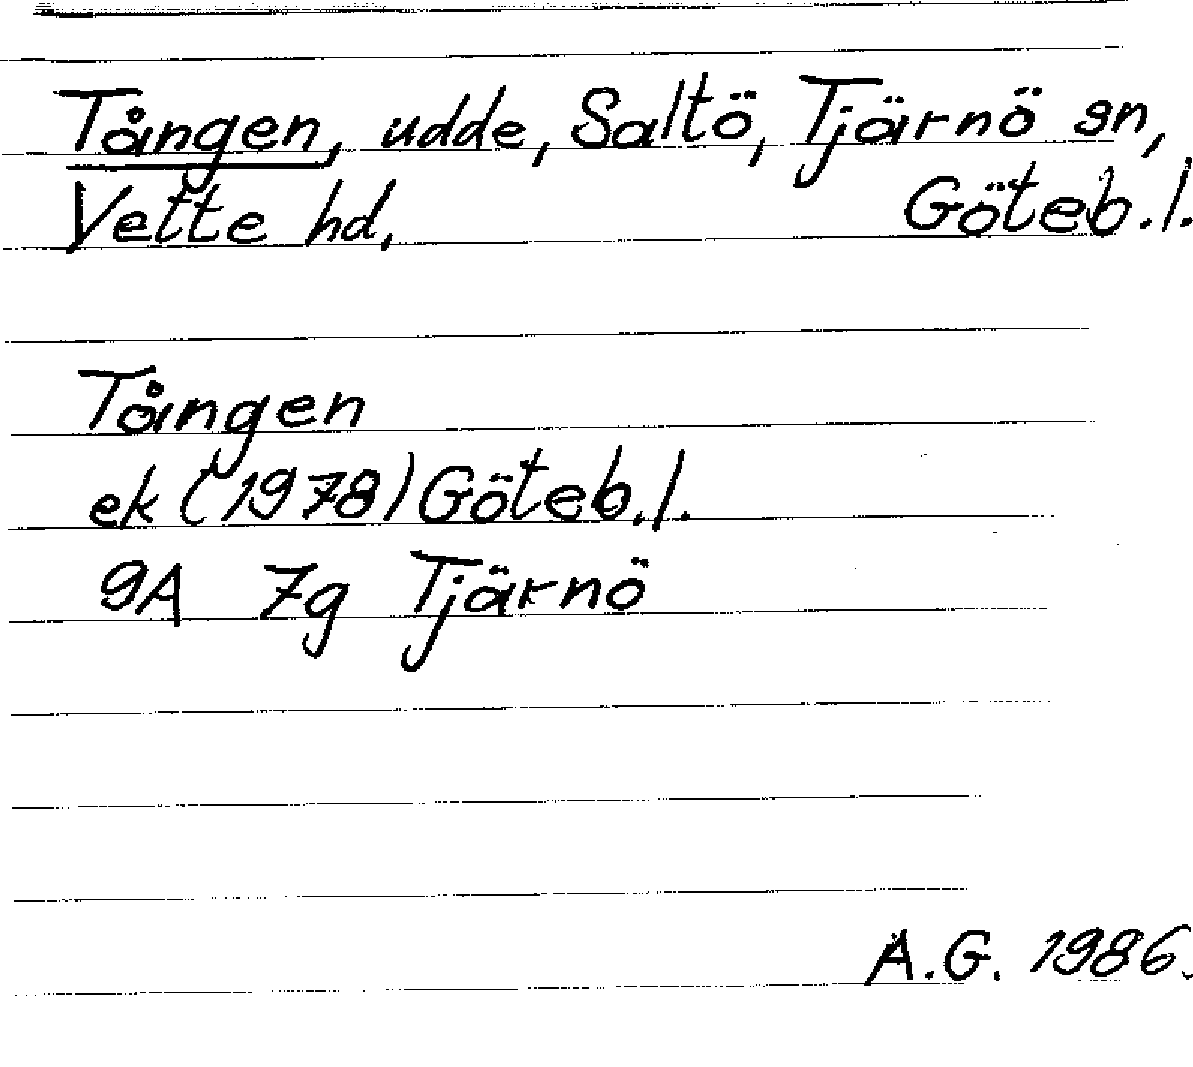 Tången, udde, Saltö, Tjärnö sn,
Vette hd, Göteb.l.
Tången
ek (1978) Göteb.l.
9A 7g Tjärnö
A.G. 1986.